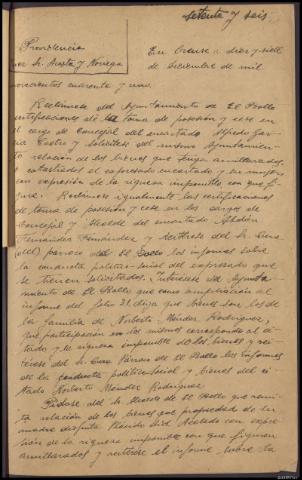 setenta y seis
Providencia
Juez Sr. Acosta y Noriega
En Orense a diez y siete
de diciembre de mil
novecientos cuarenta y uno.
Reclámese del Ayuntamiento de El Bollo
certificaciones de la toma de posesión y cese en
el cargo de Concejal del encartado Alfredo
Castro y solicítese del mismo Ayuntamien-
to relación de los bienes que tenga amillarados
o catastrados el expresado encartado y su mujer
con expresión de la riqueza imponible con que fi-
gura. Reclámese igualmente las certificaciones
de toma de posesión y cese en los cargos de
Concejal y Alcalde del encartado
Fernández Fernández y recíbase del Sr. Cura
párroco de El Bollo los informes sobre
la conducta político-social del expresado que
se tienen solicitados. Intereses del Ayunta-
miento de El Bollo que como ampliación al
informe del Julio 31 diga que bienes son los de
la familia de Norberto Méndez Rodríguez,
que participación en los mismos corresponde al ci-
tado y la riqueza imponible de los bienes y recí-
base del Sr. Cura Párroco de El Bollo los informes
de la conducta político-social y bienes del ci-
tado Norberto Méndez Rodríguez
Pídase del Sr. Alcalde de El Bollo que remi-
ta relación de los bienes que propiedad de su
madre disfruta con expre-
sión de la riqueza imponible con que figuran
amillarados y recíbase el informe sobre la